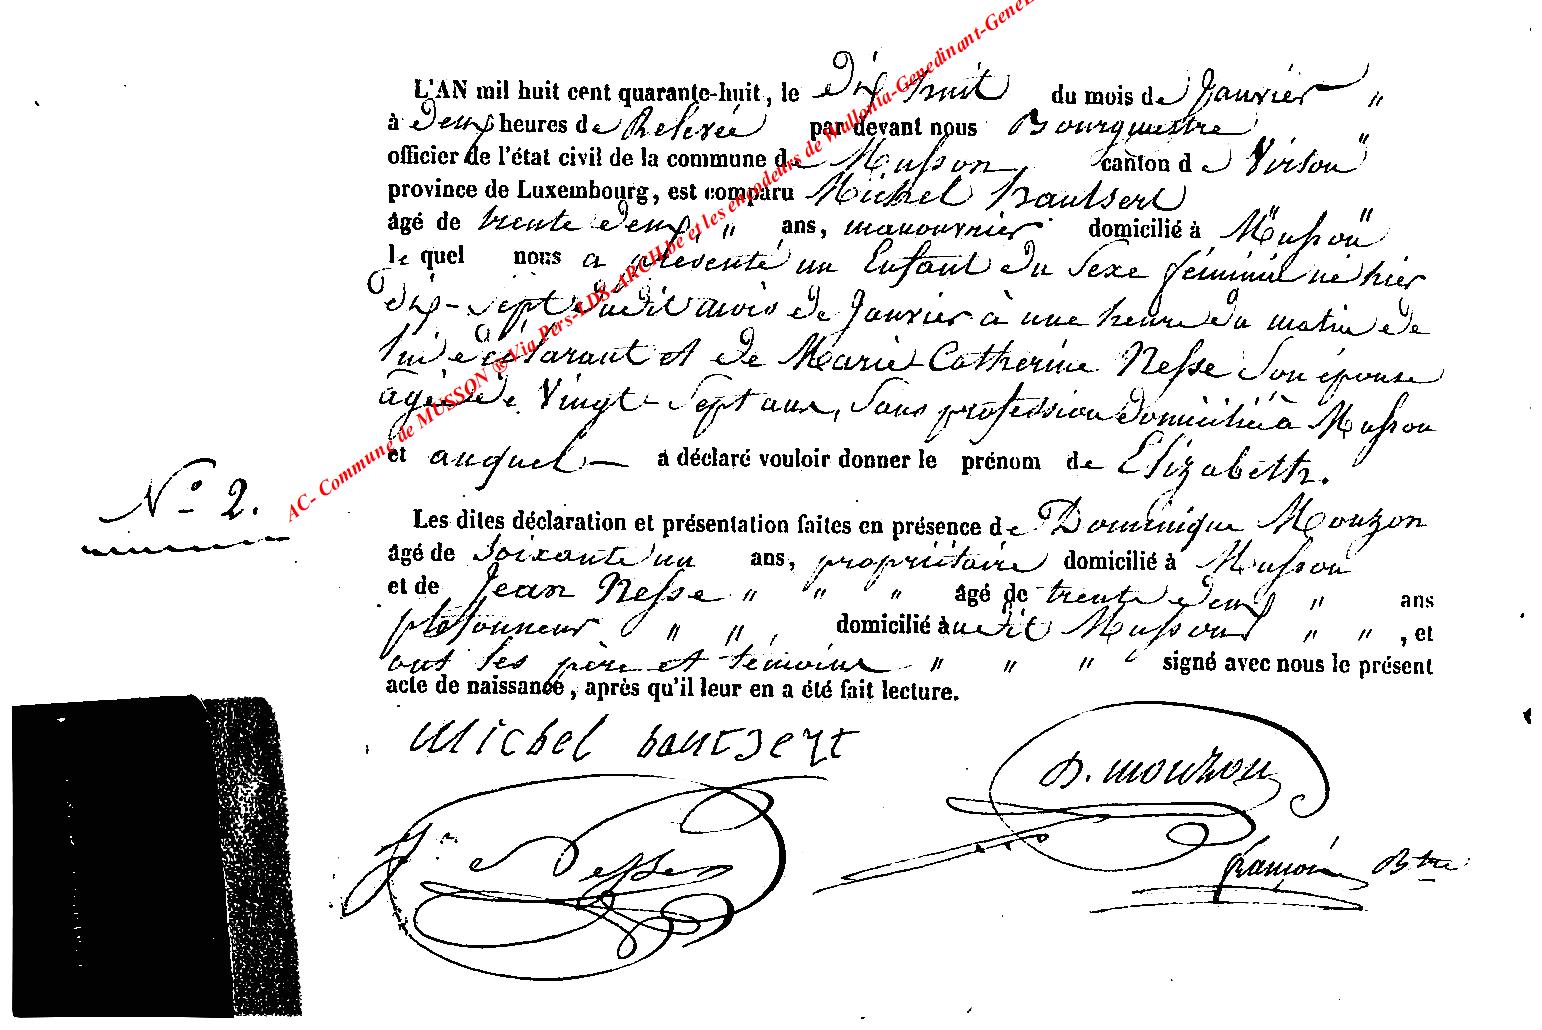 L'AN mil huit cent quarante-huit, le Dix huit du mois de Janvier "
à deux heures de Relevée par devant nous Bourgmestre "
officier de l'état civil de la commune de Musson canton de Virton "
province de Luxembourg, est comparu Michel hautsert
âgé de trente deux, " ans, manouvrier domicilié à Musson "
le quel nous a présenté un Enfant du Sexe féminin né hier
dix-sept dudit mois de Janvier à une heure du matin de
lui déclarant et de Marie Catherine Nesse Son épouse
âgée de Vingt-Sept ans, Sans profession domiciliée à Musson
et auquel — a déclaré vouloir donner le prénom de Elizabeth.
N° 2.
Les dites déclaration et présentation faites en présence de Dominique Mouzon
âgé de Soixante un ans, propriétaire domicilié à Musson
et de Jean Nesse " " " âgé de trente deux " ans
plafonneur " " , domicilié audit Musson " " , et
ont les père et témoins " " " signé avec nous le présent
acte de naissance, après qu'il leur en a été fait lecture.
Michel hautsert
D. mouzon
Jn Nesse
françois Btre
AC- Commune de MUSSON ® Via Pers-LDS-ARCH.be et les encodeurs de Wallonia-Genedinant-GeneL